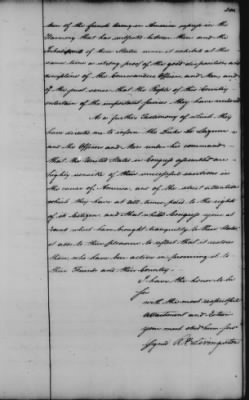 men of the french Army in America express in the
Harmony that has subsisted between them and the
Inhabitants of these States since it exhibits at the
same time a strong proof of the good disposition and
discipline of the Commanders Officers and Men, and
of the just sense that the People of this Country
entertain of the important services they have rendered
As a further Testimony of which, they
have directed me to inform the Duke de Lauzun
and the Officers and Men under his command
that the United States in Congress assembled are
highly sensible of their successful exertions in
the cause of America, and of the strict attention
which they have at all times paid to the rights
of its Citizens and that while Congress rejoice at
events which have brought tranquility to these States
it adds to their pleasure to reflect that it restores
those who have been active in procuring it to
their Friends and their Country.
I have the honor to be
Sir
with the most respectful
attachment and Esteem
your most obed hum. serv
signed R. R. Livingston